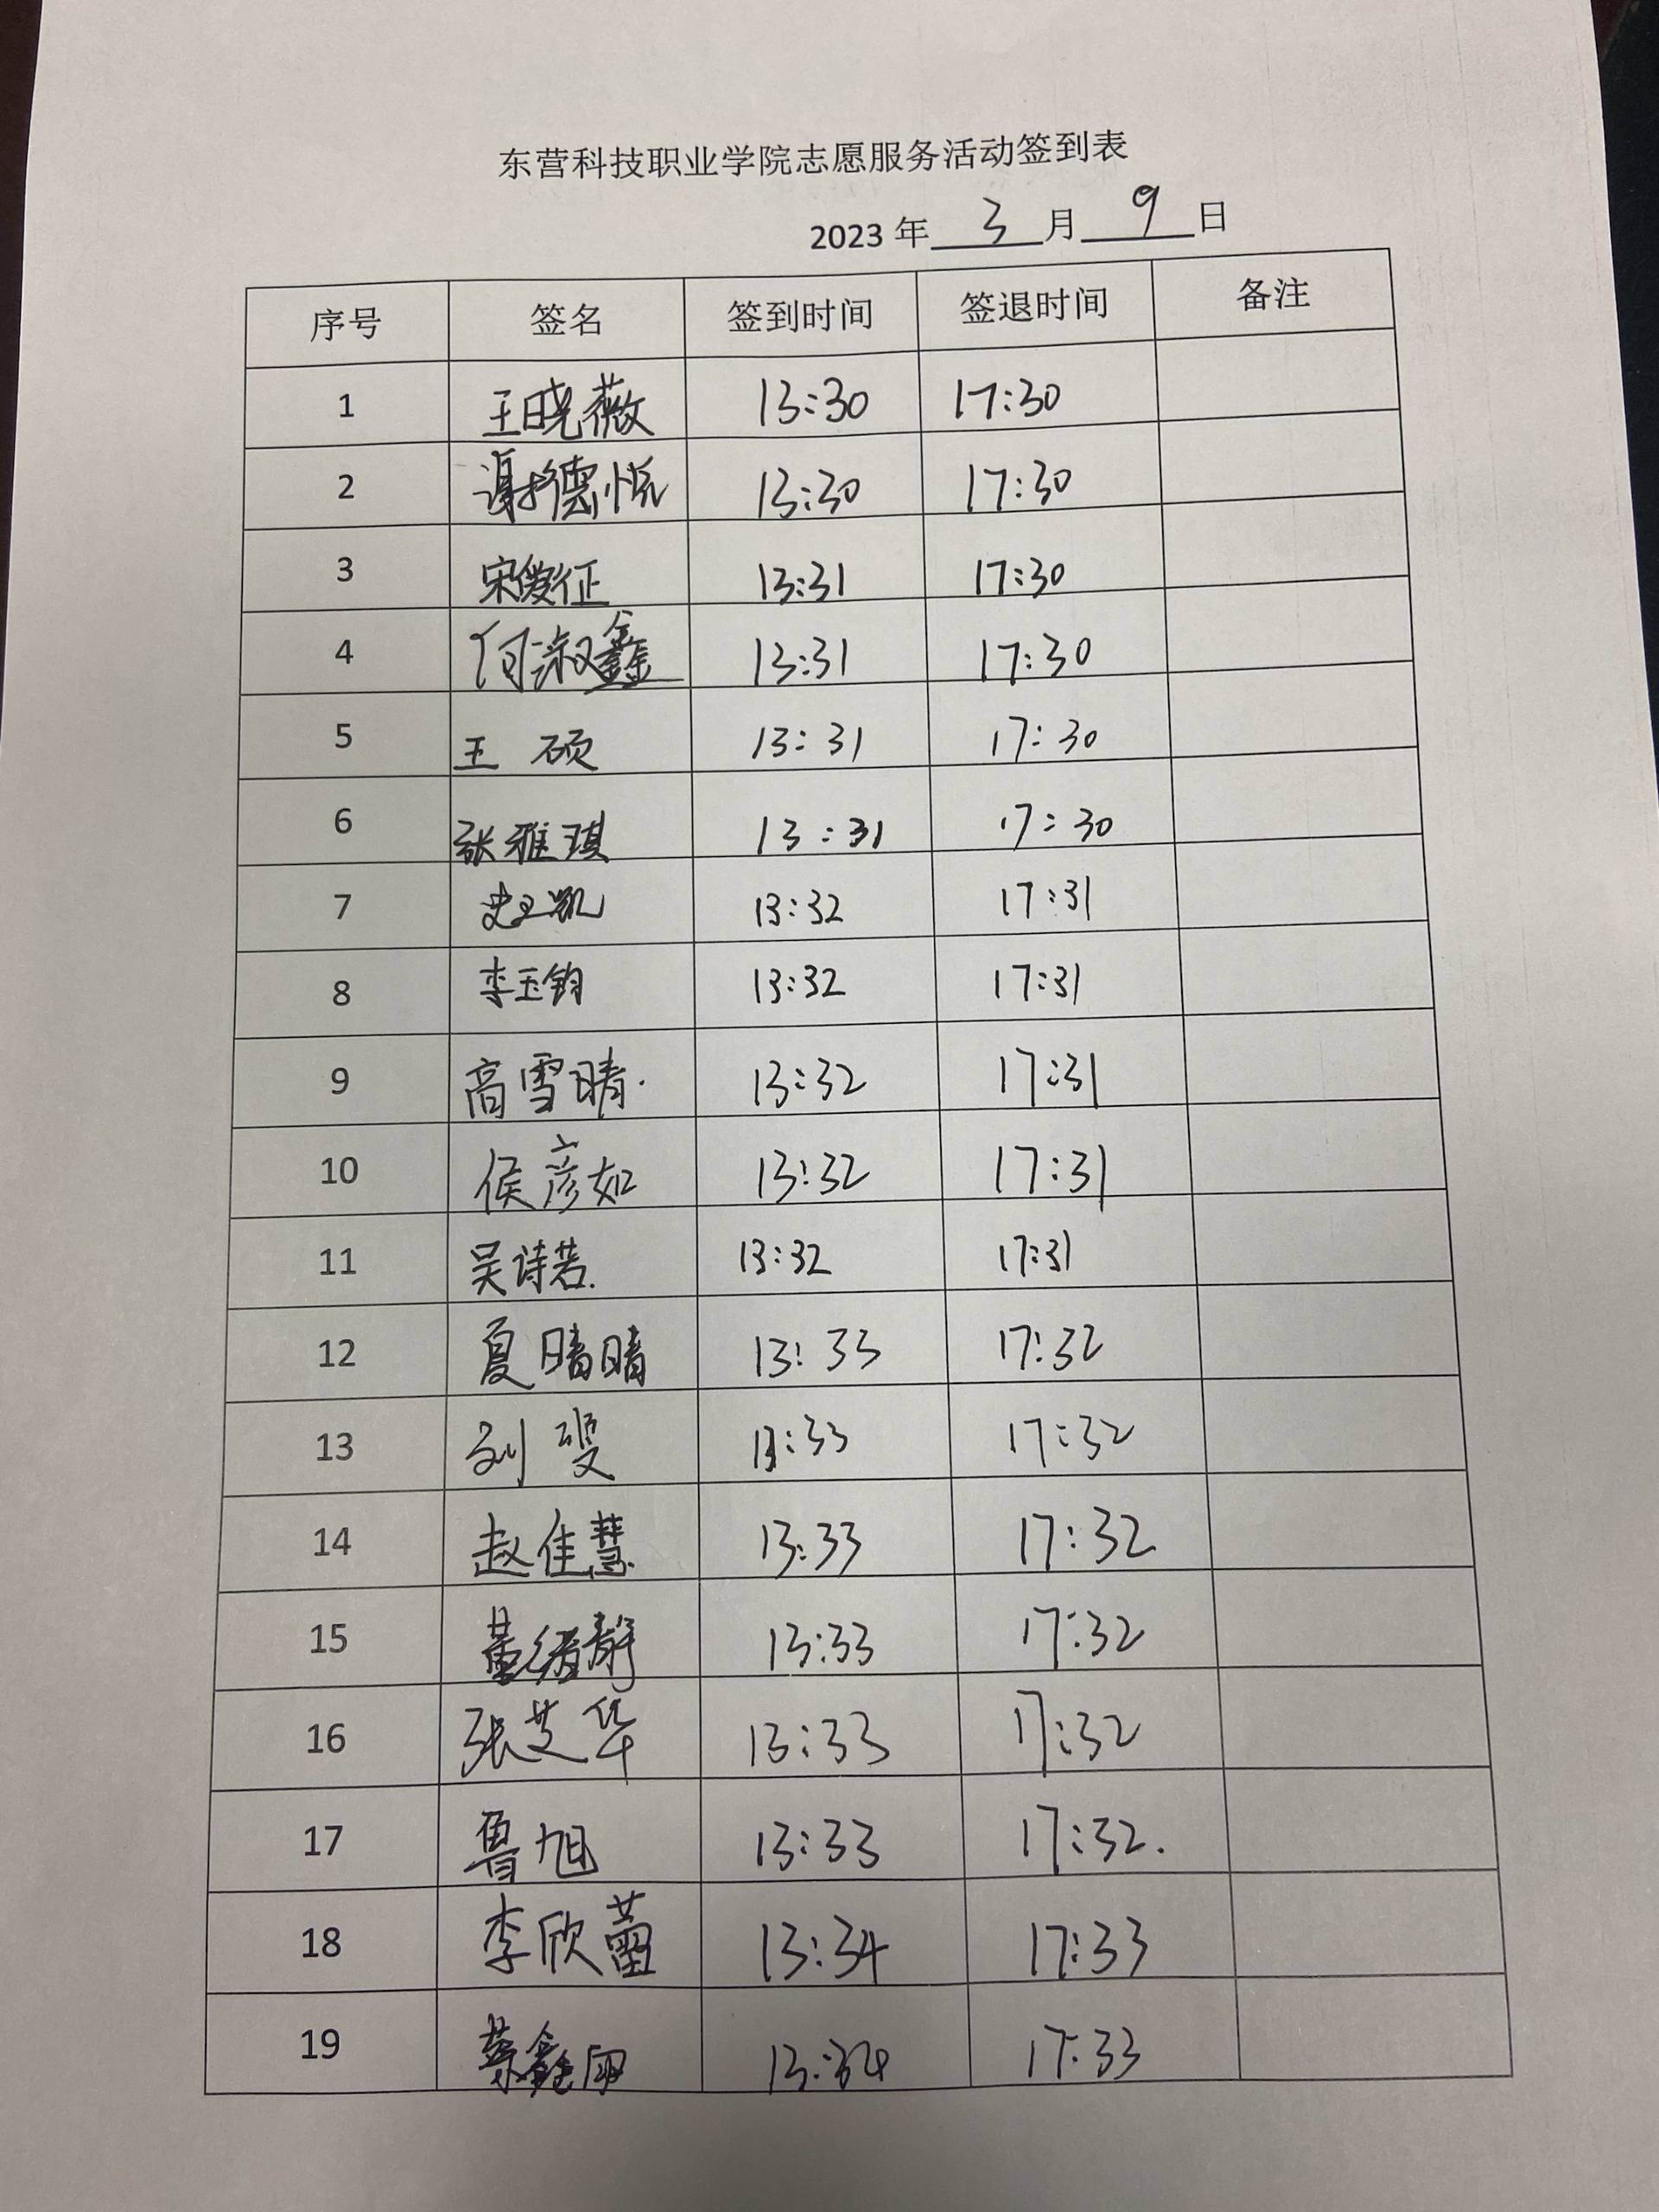 东营科技职业学院志愿服务活动签到表
2023 年 3 月 9 日
序号 签名 签到时间 签退时间 备注
1 王晓薇 13:30 17:30
2 谢德悦 13:30 17:30
3 宋俊征 13:31 17:30
4 何淑鑫 13:31 17:30
5 王硕 13:31 17:30
6 张雅琪 13:31 17:30
7 史卫凯 13:32 17:31
8 李玉钧 13:32 17:31
9 高雪晴. 13:32 17:31
10 侯彦如 13:32 17:31
11 吴诗若. 13:32 17:31
12 夏晴晴 13:33 17:32
13 刘 13:33 17:32
14 赵佳慧 13:33 17:32
15 董绪静 13:33 17:32
16 张芝华 13:33 17:32
17 鲁旭 13:33 17:32.
18 李欣蕾 13:34 17:33
19 蔡鑫雨 13:34 17:33